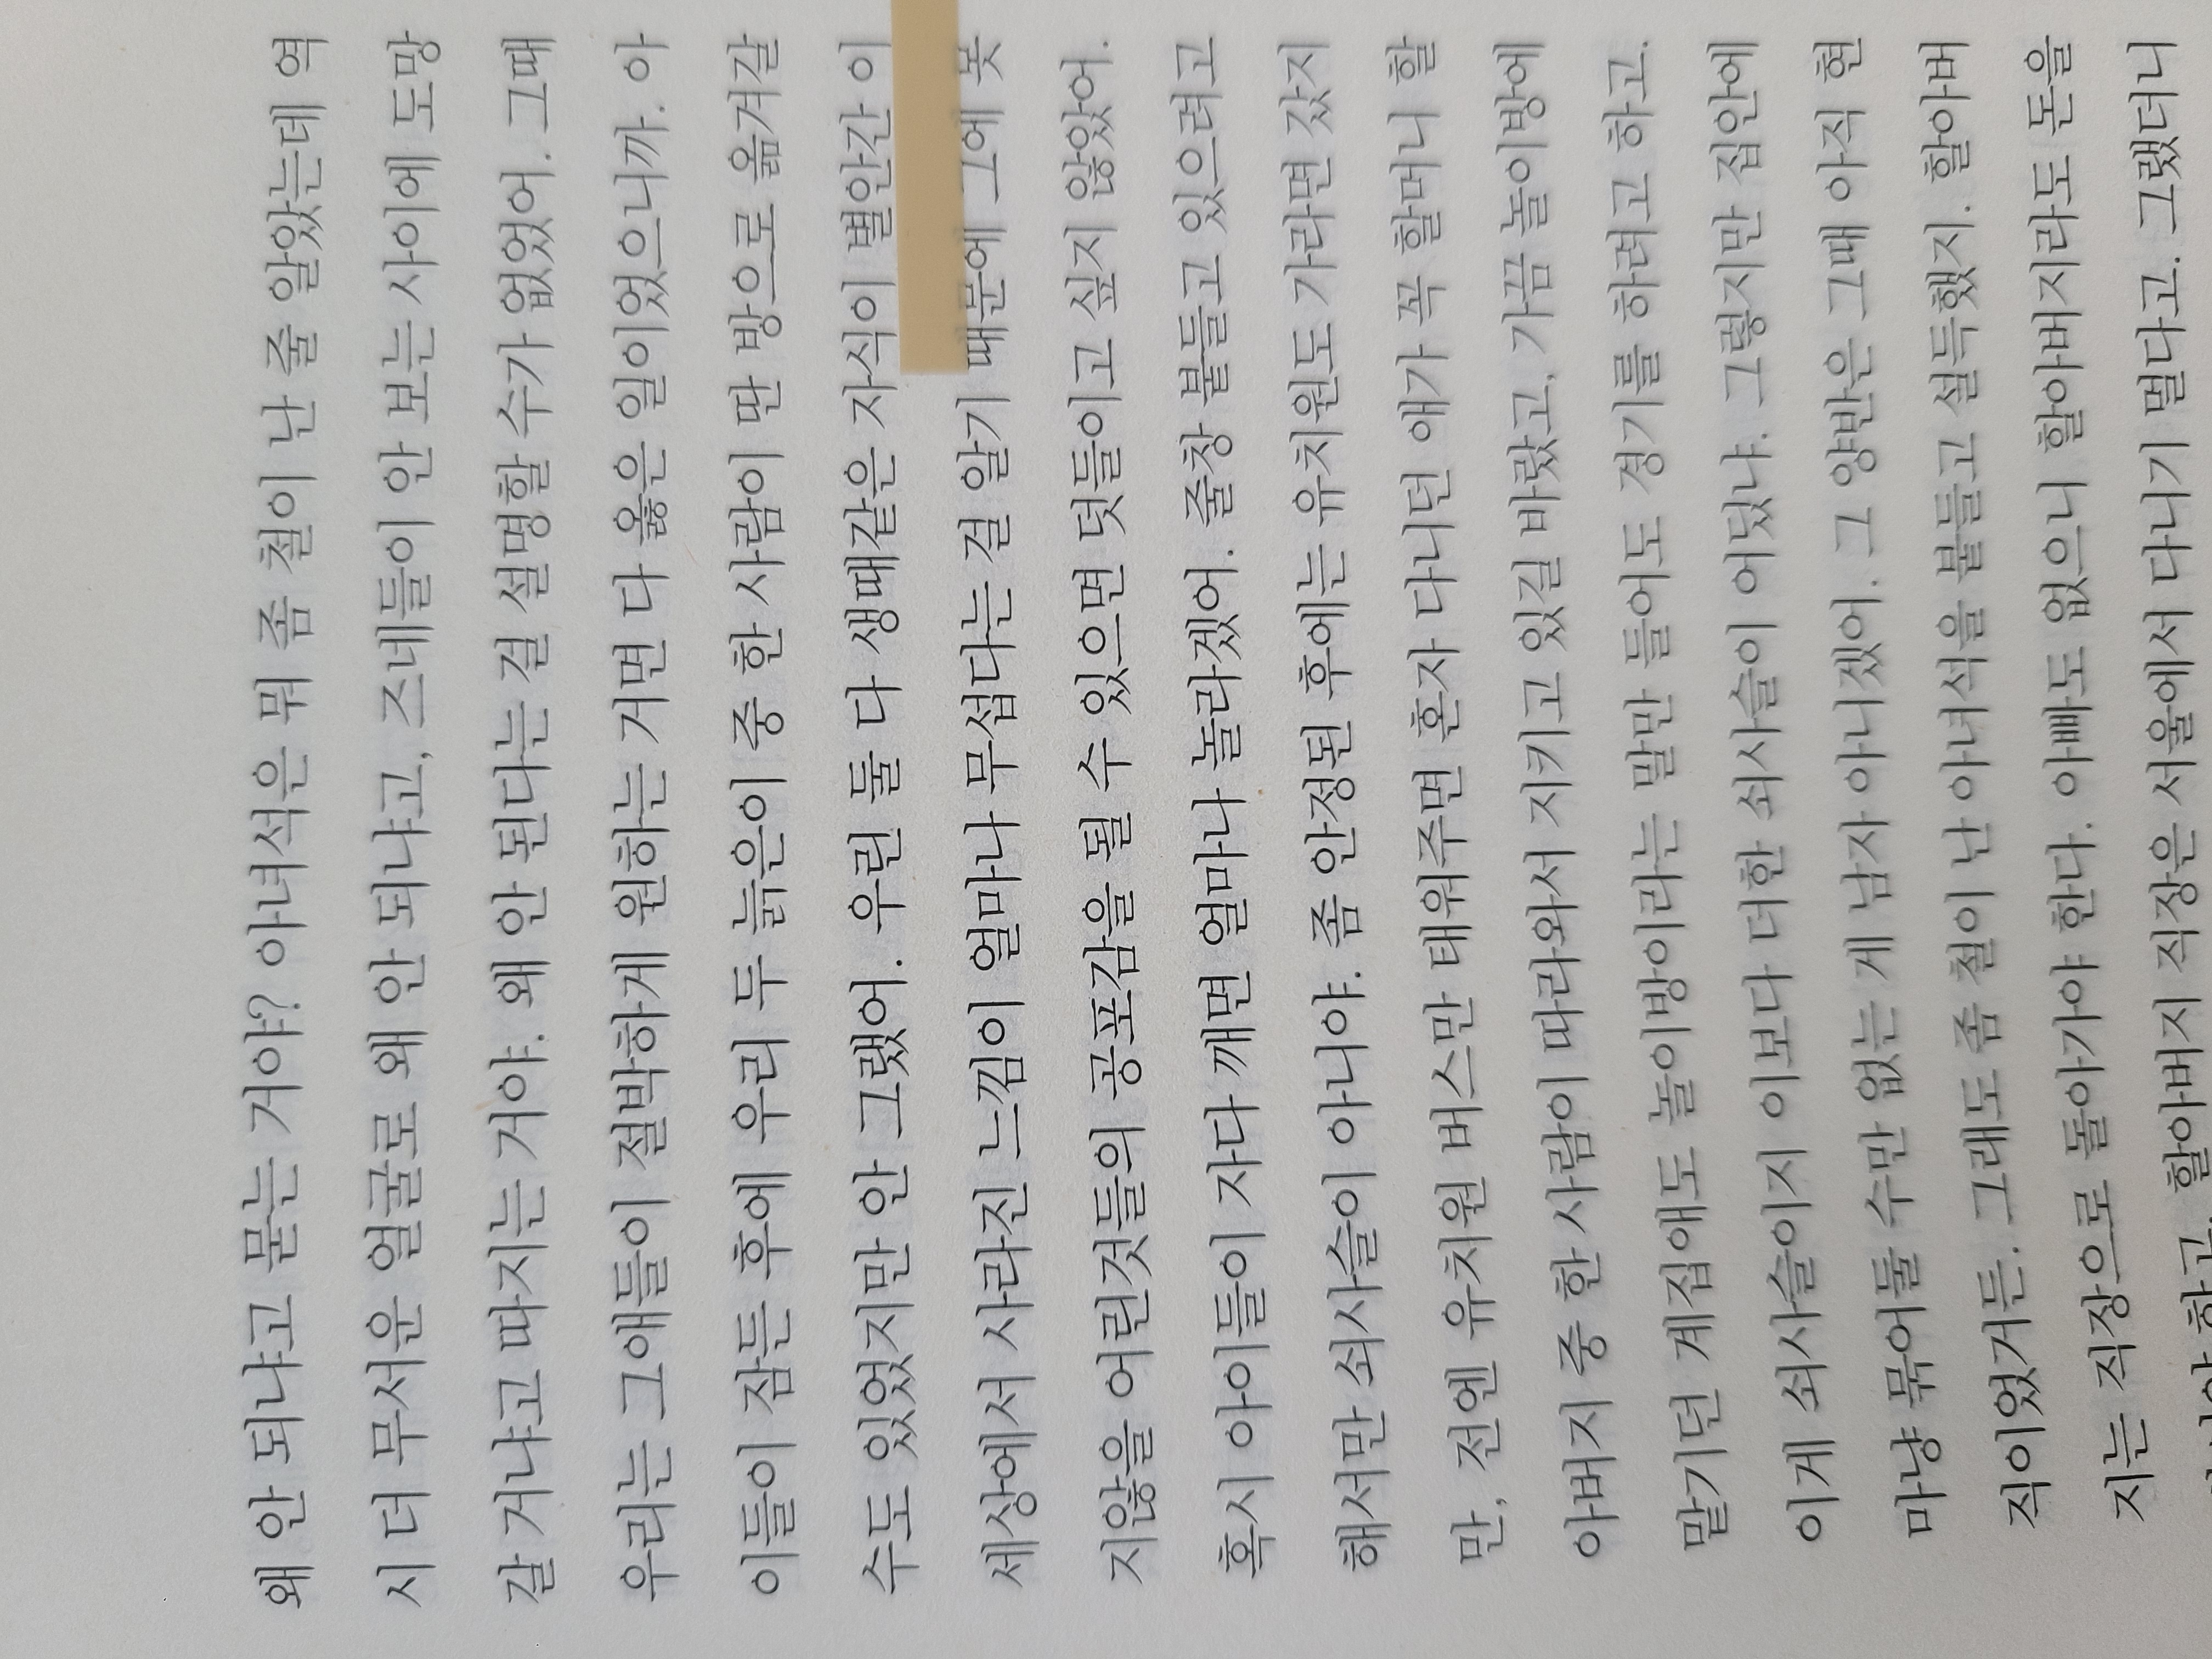 왜 안 되냐고 묻는 거야? 아녀석은 뭐 좀 철이 난 줄 알았는데 역
시 더 무서운 얼굴로 왜 안 되냐고, 즈네들이 안 보는 사이에 도망
갈 거냐고 따지는 거야. 왜 안 된다는 걸 설명할 수가 없었어. 그때
우리는 그애들이 절박하게 원하는 거면 다 옳은 일이었으니까. 아
이들이 잠든 후에 우리 두 늙은이 중 한 사람이 딴 방으로 옮겨갈
수도 있었지만 안 그랬어. 우린 둘 다 생때같은 자식이 별안간 이
세상에서 사라진 느낌이 얼마나 무섭다는 걸 알기 때문에 그에 못
지않을 어린것들의 공포감을 될 수 있으면 덧들이고 싶지 않았어.
혹시 아이들이 자다 깨면 얼마나 놀라겠어. 줄창 붙들고 있으려고
해서만 쇠사슬이 아니야. 좀 안정된 후에는 유치원도 가라면 갔지
만, 전엔 유치원 버스만 태워주면 혼자 다니던 애가 꼭 할머니 할
아버지 중 한 사람이 따라와서 지키고 있길 바랐고, 가끔 놀이방에
맡기던 계집애도 놀이방이라는 말만 들어도 경기를 하려고 하고.
이게 쇠사슬이지 이보다 더한 쇠사슬이 어딨냐. 그렇지만 집안에
마냥 묶어둘 수만 없는 게 남자 아니겠어. 그 양반은 그때 아직 현
직이었거든. 그래도 좀 철이 난 아녀석을 붙들고 설득했지. 할아버
지는 직장으로 돌아가야 한다. 아빠도 없으니 할아버지라도 돈을
하고, 할아버지 직장은 서울에서 다니기 멀다고. 그랬더니